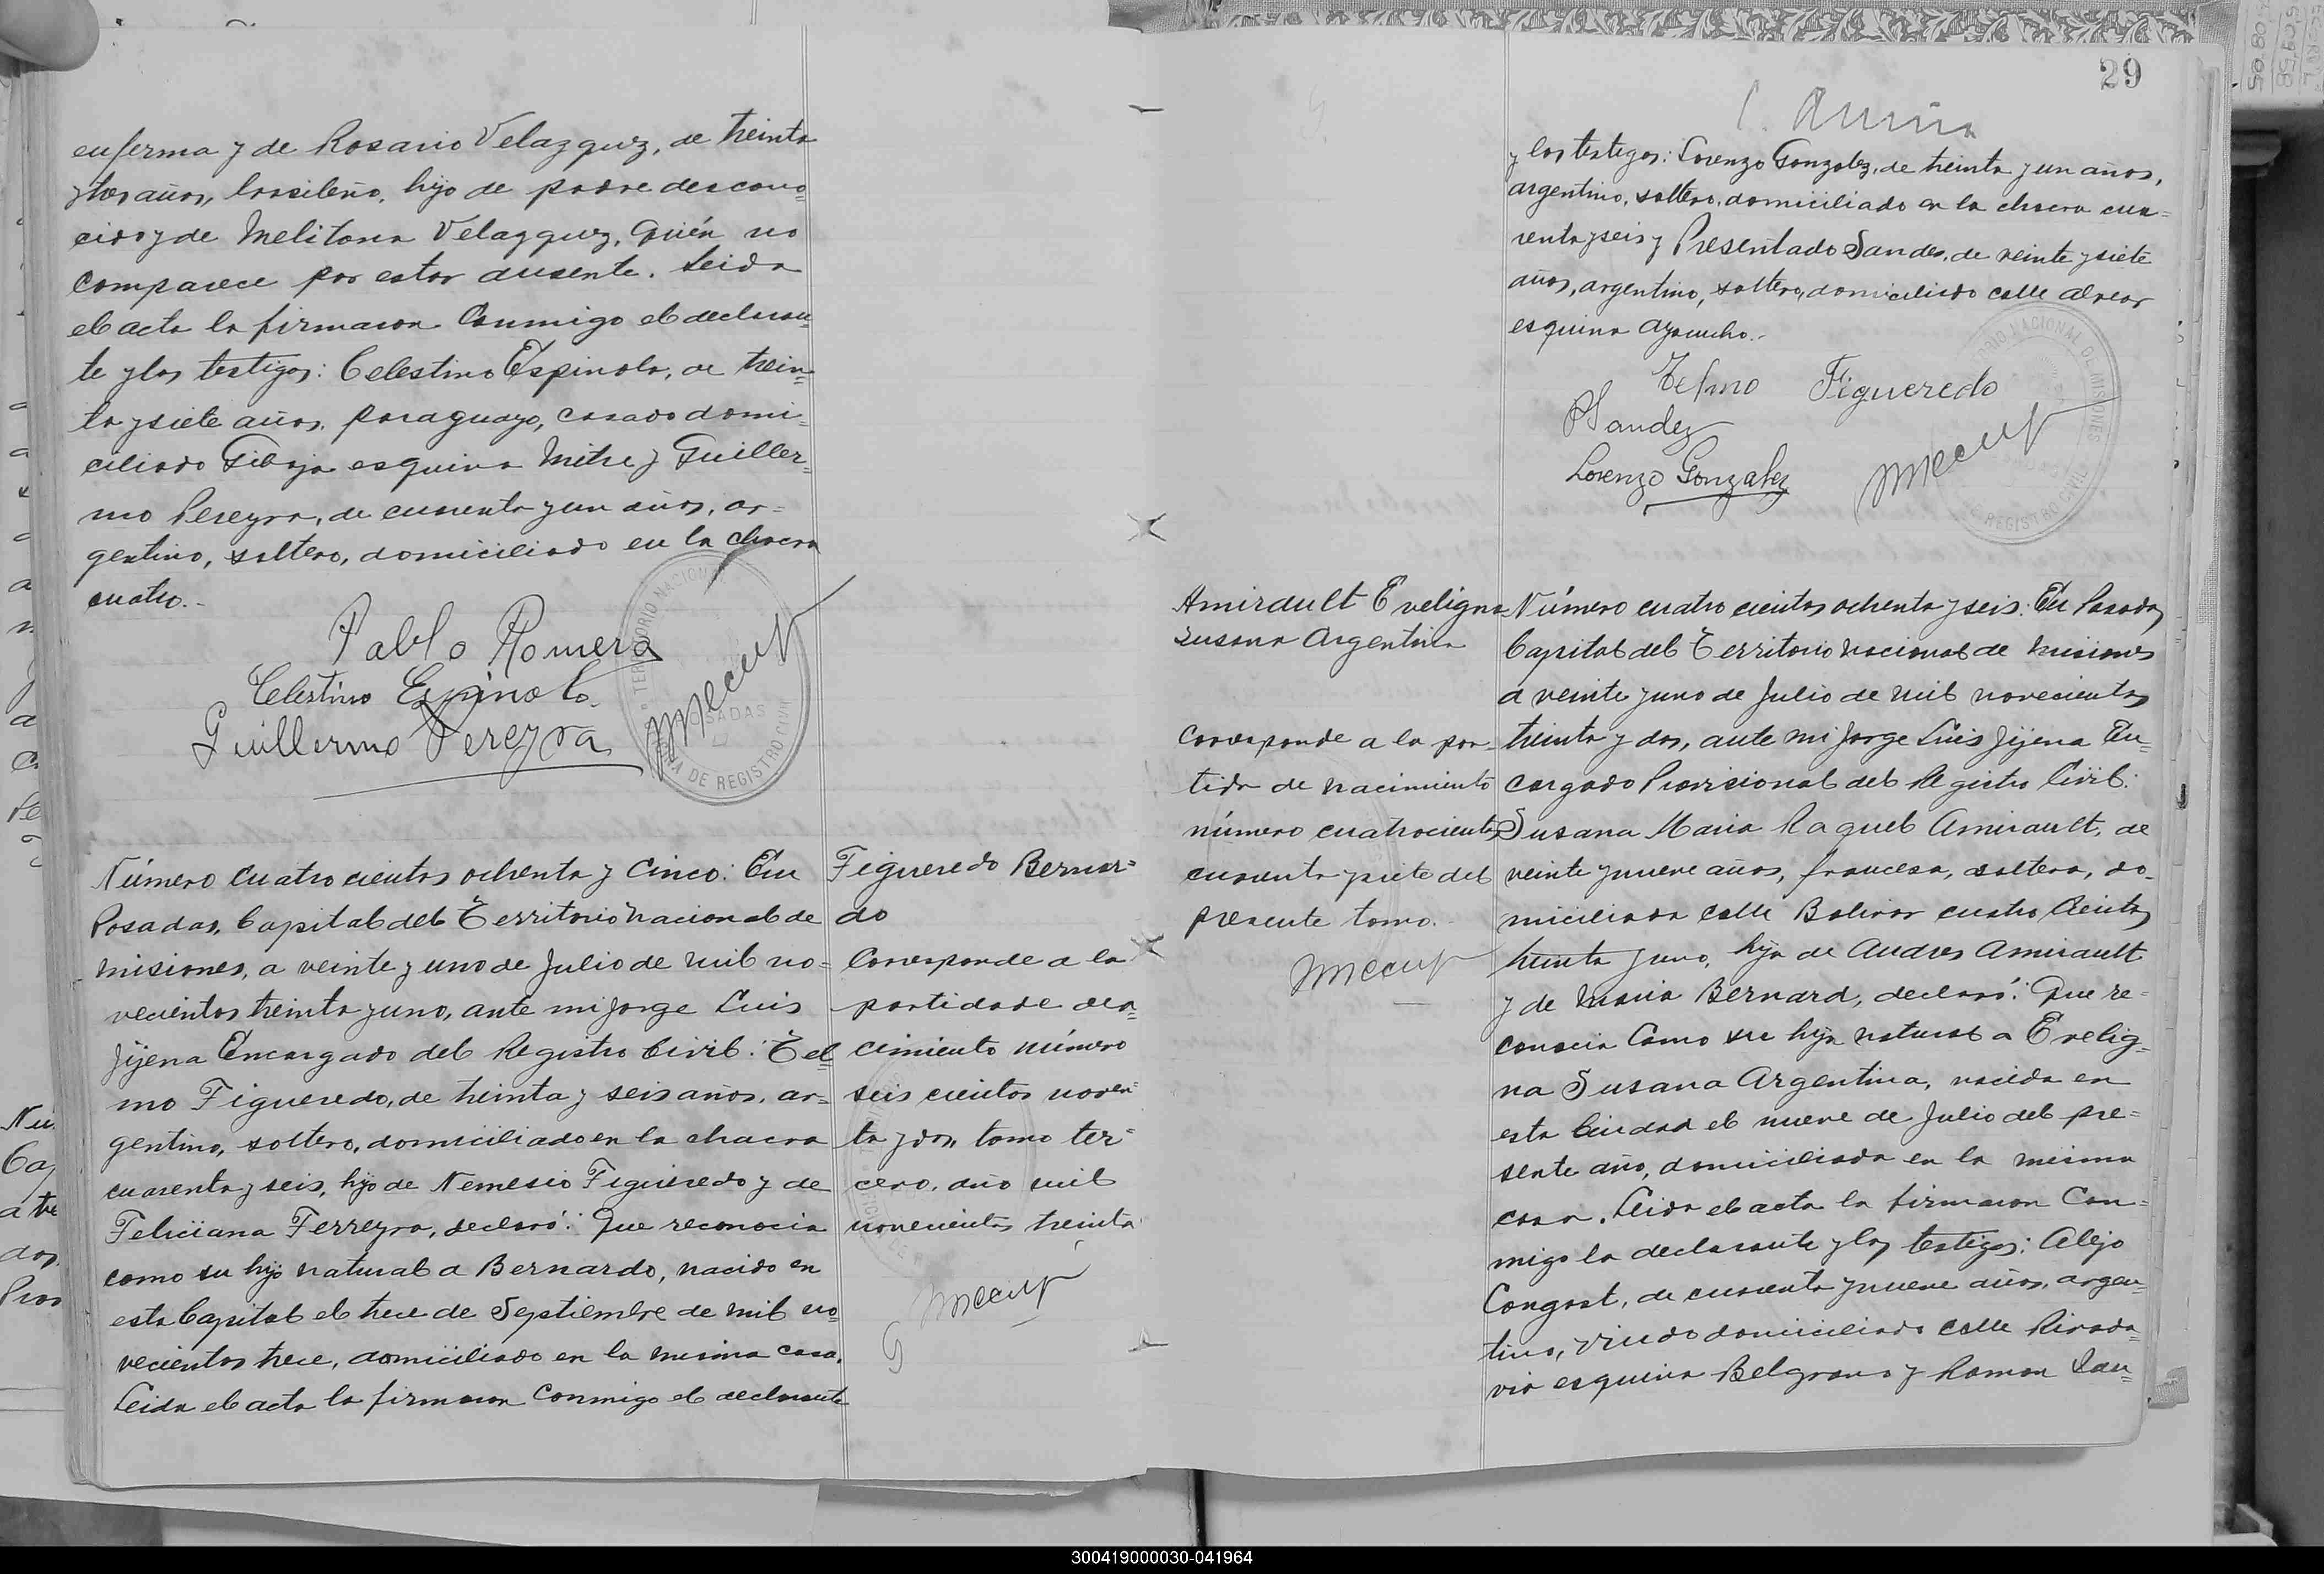 enferma y de Rosario Velazquez, de treinta
y tres años, brasileño, hijo de padre descono=
cido y de Melitona Velazquez, quién no
comparece por estar ausente. Leida
el acta la firmaron Conmigo el declaran=
te y los testigos: Celestino Espinola, de trein=
ta y siete años, paraguayo, casado domi=
ciliado Gibaja esquina Mitre y Guiller=
mo Pereyra, de cuarenta y un años, ar=
gentino, soltero, domiciliado en la chacra
cuatro.-
Pablo Romero
Celestino Espinola
Guillermo Pereyra
TERRITORIO NACIONAL
POSADAS
DE REGISTRO CIVIL
Número cuatrocientos ochenta y cinco: En
Posadas, Capital del Territorio Nacional de
Misiones, a veinte y uno de Julio de mil no=
vecientos treinta y uno, ante mi Jorge Luis
Jijena Encargado del Registro Civil: Tel=
mo Figueredo, de treinta y seis años, ar=
gentino, soltero, domiciliado en la chacra
cuarenta y seis, hijo de Nemesio Figueredo y de
Feliciana Ferreyra, declaró: Que reconocia
como su hijo natural a Bernardo, nacido en
esta Capital el trece de Septiembre de mil no=
vecientos trece, domiciliado en la misma casa.
Leida el acta la firmaron Conmigo el declarante
Figueredo Bernar=
do
Corresponde a la
partida de na=
cimiento número
seis cientos noven=
ta y dos, tomo ter=
cero, año mil
novecientos treinta
29
y los testigos: Lorenzo Gonzalez, de treinta y un años,
argentino, soltero, domiciliado en la chacra cua=
renta y seis y Presentado Sandez, de veinte y siete
años, argentino, soltero, domiciliado calle Alvear
esquina Ayacucho.-
Telmo Figueredo
P Sandez
Lorenzo Gonzalez
TERRITORIO NACIONAL DE MISIONES
POSADAS
DE REGISTRO CIVIL
Amirault Eveligna
Susana Argentina
Corresponde a la par=
tida de nacimiento
número cuatrocientos
cuarenta y siete del
presente tomo.
Número cuatrocientos ochenta y seis: En Posadas,
Capital del Territorio Nacional de Misiones
a veinte y uno de Julio de mil novecientos
treinta y dos, ante mi Jorge Luis Jijena En=
cargado Provisional del Registro Civil:
Susana Maria Raquel Amirault, de
veinte y nueve años, francesa, soltera, do=
miciliada calle Bolivar cuatro cientos
treinta y uno, hija de Andres Amirault
y de Maria Bernard, declaró: Que re=
conocia como su hija natural a Evelig=
na Susana Argentina, nacida en
esta Ciudad el nueve de Julio del pre=
sente año, domiciliada en la misma
casa. Leida el acta la firmaron Con=
migo la declarante y los testigos: Alejo
Congost, de cuarenta y nueve años, argen=
tino, viudo domiciliado calle Rivada=
via esquina Belgrano y Ramon Lau=
300419000030-041964